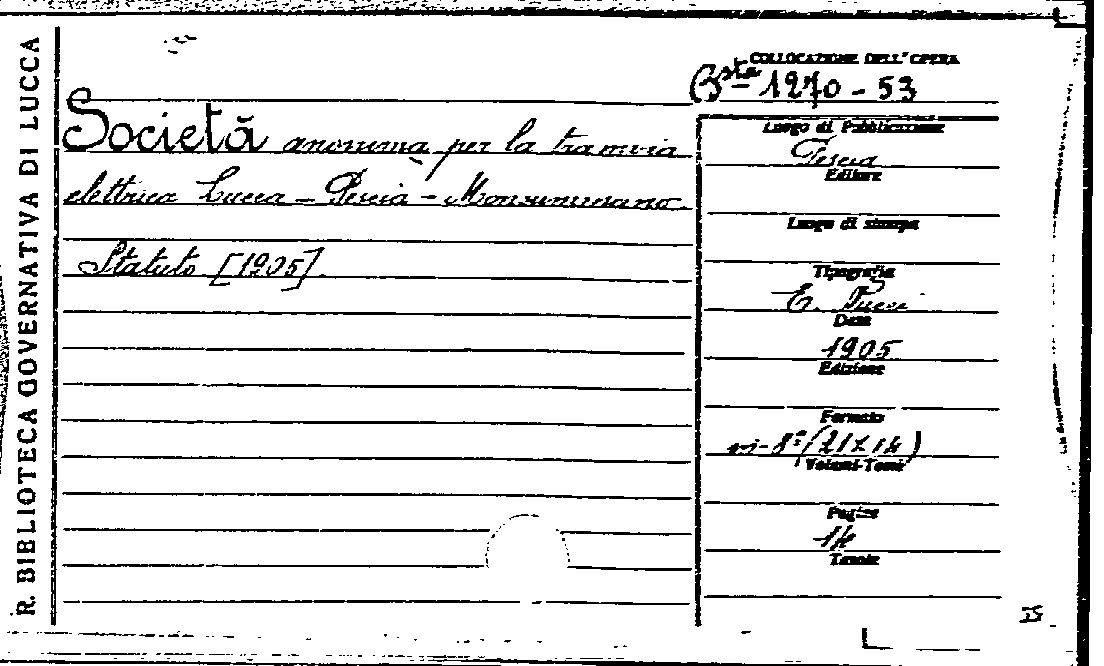 R. BIBLIOTECA GOVERNATIVA DI LUCCA
COLLOCAZIONE DELL'OPERA
Bsta 1270 - 53
Società anonima per la tramvia
elettrica Lucca - Pescia - Monsummano
Statuto [1905]
Luogo di Pubblicazione
Pescia
Editore
Luogo di stampa
Tipografia
E. Nucci
Data
1905
Edizione
Formato
in-8º (21X14)
Volumi-Tomi
Pagine
14
Tavole